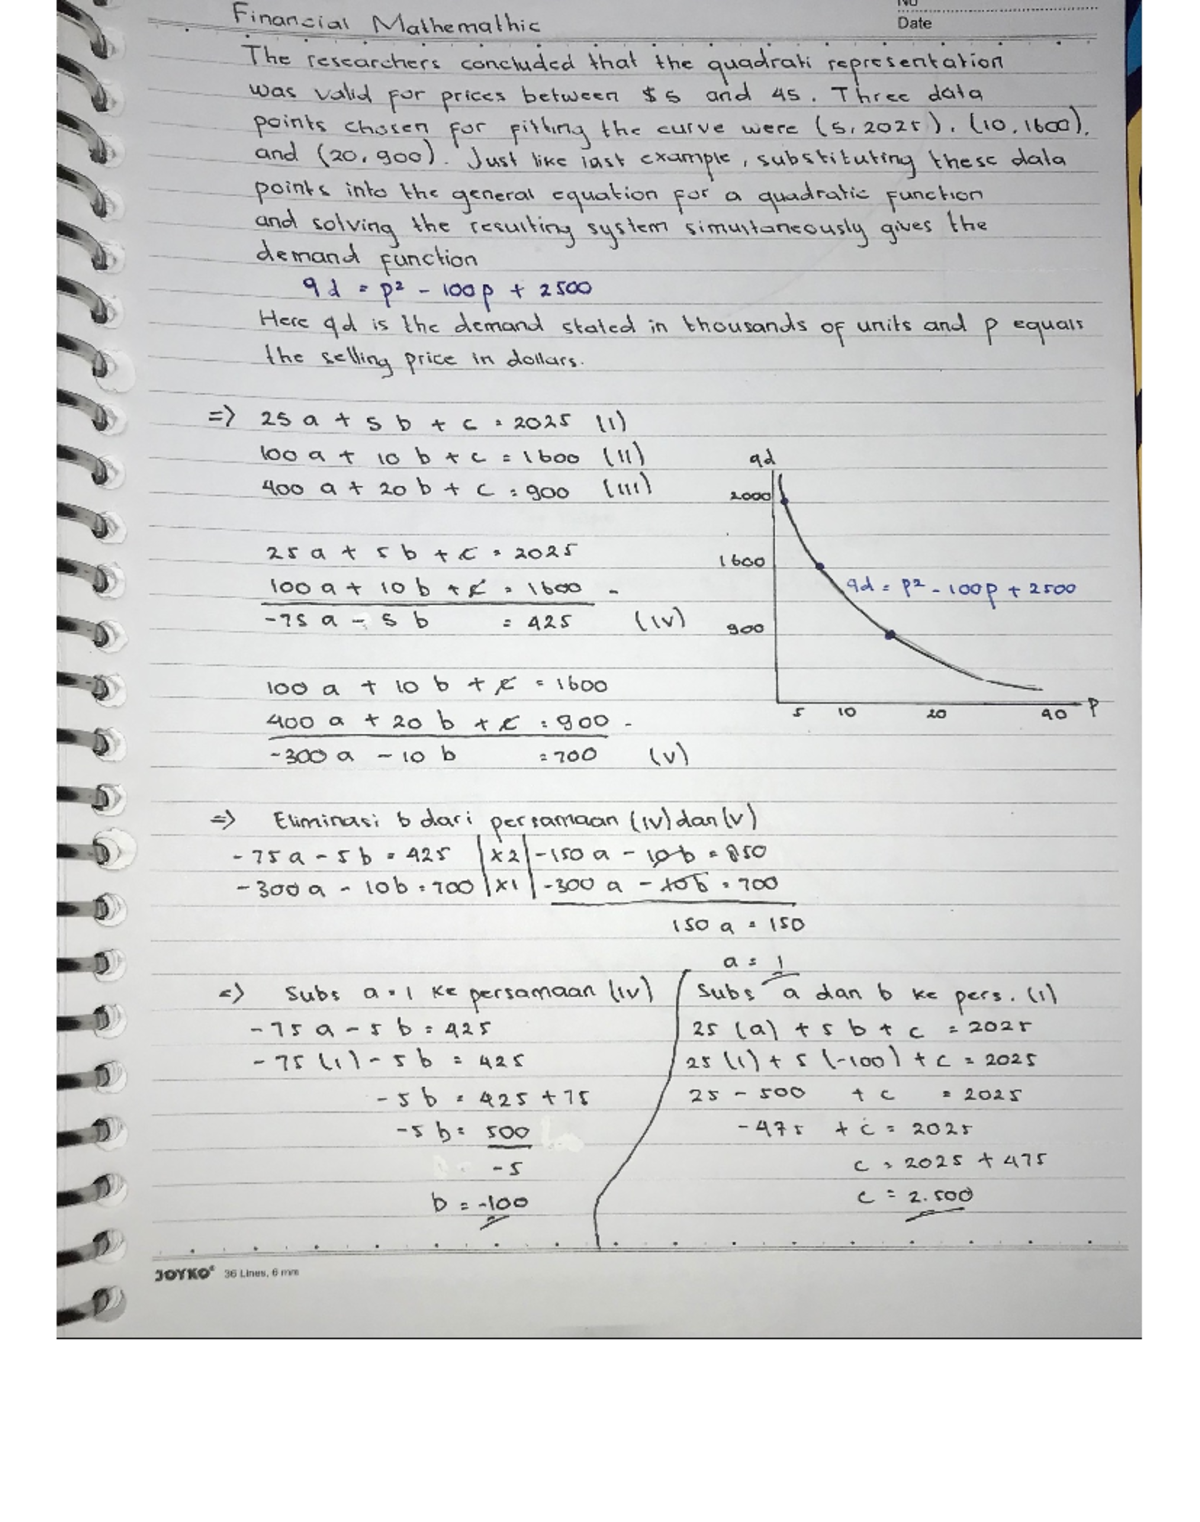 No
Date
Financial Mathemathic
The researchers concluded that the quadrati representation
was valid for prices between $5 and 45. Three data
points chosen for fitting the curve were (5, 2025), (10, 1600),
and (20, 900). Just like last example, substituting these data
points into the general equation for a quadratic function
and solving the resulting system simultaneously gives the
demand function
qd = p² - 100p + 2500
Here qd is the demand stated in thousands of units and p equals
the selling price in dollars.
=> 25 a + 5 b + c = 2025 (I)
100 a + 10 b + c = 1600 (II)
400 a + 20 b + c = 900 (III)
25 a + 5 b + c = 2025
100 a + 10 b + c = 1600 -
-75 a - 5 b = 425 (IV)
100 a + 10 b + c = 1600
400 a + 20 b + c = 900 -
-300 a - 10 b = 700 (V)
qd
2000
1600
qd = p² - 100p + 2500
900
5 10 20 40 P
=> Eliminasi b dari persamaan (IV) dan (V)
-75 a - 5 b = 425 | x2 | -150 a - 10 b = 850
-300 a - 10 b = 700 | x1 | -300 a - 10 b = 700
150 a = 150
a = 1
=> Subs a = 1 ke persamaan (IV)
-75 a - 5 b = 425
-75 (1) - 5 b = 425
-5 b = 425 + 75
-5 b = 500
-5
b = -100
Subs a dan b ke pers. (1)
25 (a) + 5 b + c = 2025
25 (1) + 5 (-100) + c = 2025
25 - 500 + c = 2025
-475 + c = 2025
c = 2025 + 475
c = 2.500
JOYKO® 36 Lines, 6 mm